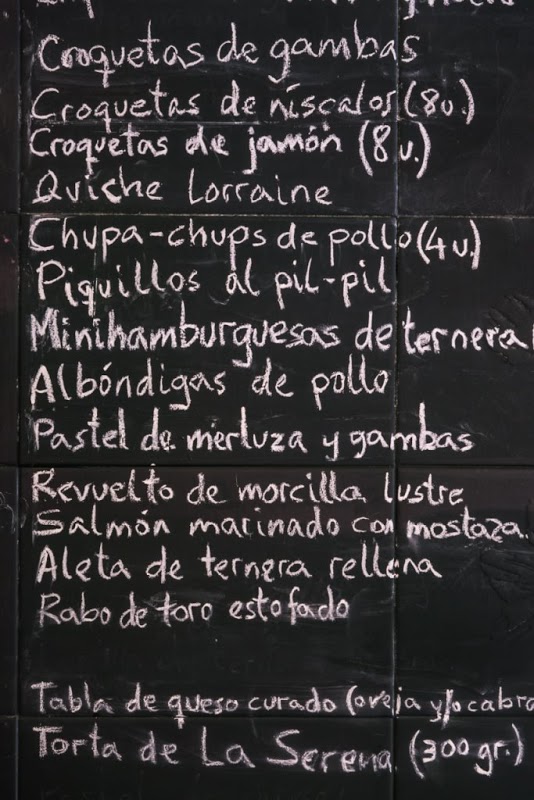 Croquetas de gambas
Croquetas de níscalos (8u.)
Croquetas de jamón (8 u.)
Quiche Lorraine
Chupa-chups de pollo (4 u.)
Piquillos al pil-pil
Minihamburguesas de ternera
Albóndigas de pollo
Pastel de merluza y gambas
Revuelto de morcilla lustre
Salmón marinado con mostaza.
Aleta de ternera rellena
Rabo de toro estofado
Tabla de queso curado (oveja y/o cabra
Torta de La Serena (300 gr.)